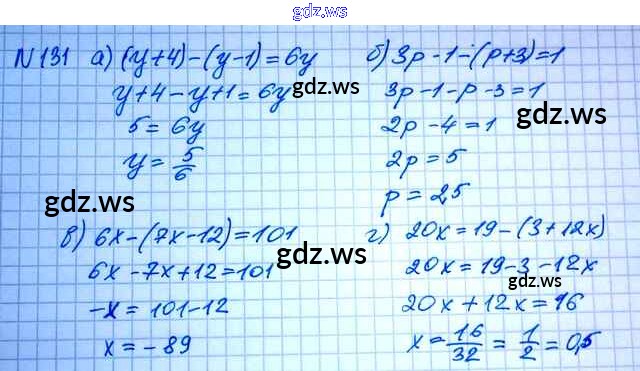 gdz.ws
№131 а) (y+4)-(y-1)=6y
y+4-y+1=6y
5=6y
y=5/6
б) 3p-1-(p+3)=1
3p-1-p-3=1
2p-4=1
2p=5
p=2,5
в) 6x-(7x-12)=101
6x-7x+12=101
-x=101-12
x=-89
г) 20x=19-(3+12x)
20x=19-3-12x
20x+12x=16
x=16/32=1/2=0,5
gdz.ws
gdz.ws
gdz.ws
gdz.ws
gdz.ws
gdz.ws
gdz.ws